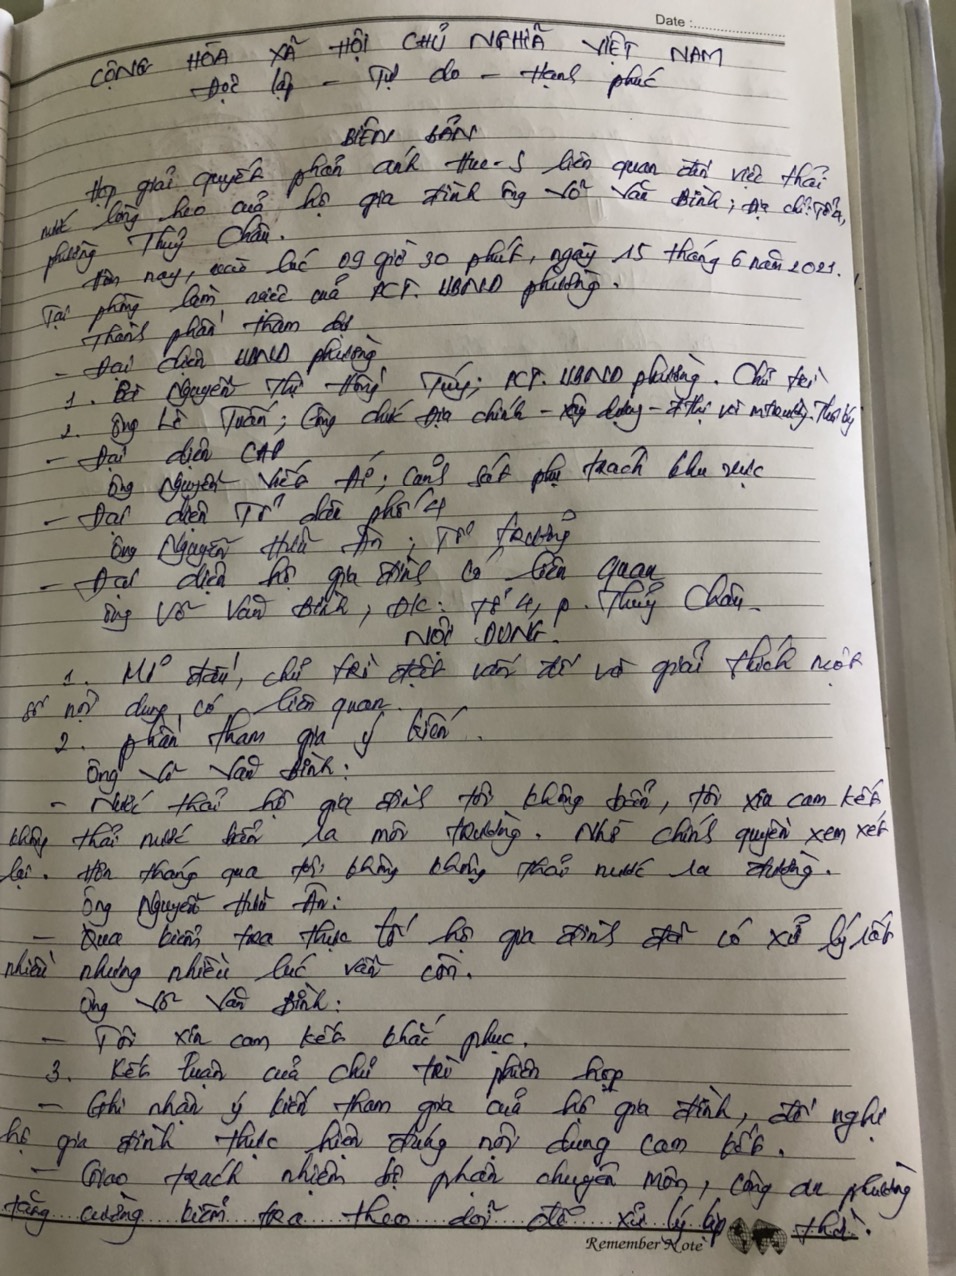 Date :
CỘNG HÒA XÃ HỘI CHỦ NGHĨA VIỆT NAM
Độc lập - Tự do - Hạnh phúc
BIÊN BẢN
Họp giải quyết phản ánh Hue-S liên quan đến việc thải
nước lòng heo của hộ gia đình ông Võ Văn Bình; Địa chỉ: Tổ 4,
phường Thuỷ Châu.
Hôm nay, vào lúc 09 giờ 30 phút, ngày 15 tháng 6 năm 2021.
Tại phòng làm việc của PCT. UBND phường.
Thành phần tham dự
- Đại diện UBND phường
1. Bà Nguyễn Thị Hồng Tuý; PCT. UBND phường. Chủ trì
2. Ông Lê Tuấn; Công chức Địa chính - xây dựng - đ thị và m trường. Thư ký
- Đại diện CAP
Ông Nguyễn Viết Ái; Cảnh sát phụ trách khu vực
- Đại diện Tổ dân phố 4
Ông Nguyễn Hữu Ân; Tổ trưởng
- Đại diện hộ gia đình có liên quan
Ông Võ Văn Bình, Đ/c: Tổ 4, p. Thuỷ Châu.
NỘI DUNG.
1. Mở đầu, chủ trì đặt vấn đề và giải thích một
số nội dung có liên quan.
2. phần tham gia ý kiến.
Ông Võ Văn Bình:
- Nước thải hộ gia đình tôi không bẩn, tôi xin cam kết
không thải nước bẩn ra môi trường. Nhờ chính quyền xem xét
lại. Hôn tháng qua tôi không không thải nước ra đường.
Ông Nguyễn Hữu Ân:
- Qua kiểm tra thực tế hộ gia đình đã có xử lý rất
nhiều nhưng nhiều lúc vẫn còn.
Ông Võ Văn Bình:
- Tôi xin cam kết khắc phục.
3. Kết luận của chủ trì phiên họp
- Ghi nhận ý kiến tham gia của hộ gia đình, đề nghị
hộ gia đình thực hiện đúng nội dung cam kết.
- Giao trách nhiệm bộ phận chuyên môn, công an phường
tăng cường kiểm tra theo dõi để xử lý kịp thời.
Remember Note